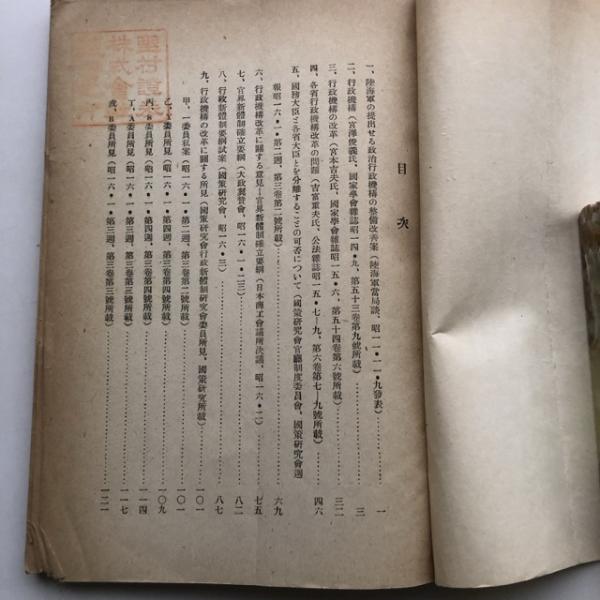 目次
一、陸海軍の提出せる政治行政機構の整備改善案（陸海軍當局談、昭一一・一一・九發表）……一
二、行政機構（宮澤俊義氏、國家學會雜誌昭一四・九、第五十三卷第九號所載）……三
三、行政機構の改革（宮本吉夫氏、國家學會雜誌昭一五・六、第五十四卷第六號所載）……三二
四、各省行政機構改革の問題（吉富重夫氏、公法雜誌昭一五・七—九、第六卷第七—九號所載）……四六
五、國務大臣と各省大臣とを分離することの可否について（國策研究會官廳制度委員會、國策研究會週
報昭一六・一・第二週、第三卷第二號所載）……六九
六、行政機構改革に關する意見—官界新體制確立要綱（日本商工會議所決議、昭一六・二）……七五
七、官界新體制確立要綱（大政翼贊會、昭一六・一・二三）……八二
八、行政新體制要綱試案（國策研究會、昭一六・三）……八七
九、行政機構の改革に關する所見（國策研究會行政新體制研究會委員所見、國策研究所載）……一〇一
甲、一委員私案（昭一六・一・第二週、第三卷第二號所載）……一〇一
乙、Y委員所見（昭一六・一・第四週、第三卷第四號所載）……一〇九
丙、S委員所見（昭一六・一・第四週、第三卷第四號所載）……一一四
丁、A委員所見（昭一六・一・第三週、第三卷第三號所載）……一一七
戊、B委員所見（昭一六・一・第三週、第三卷第三號所載）……一二一
株式會